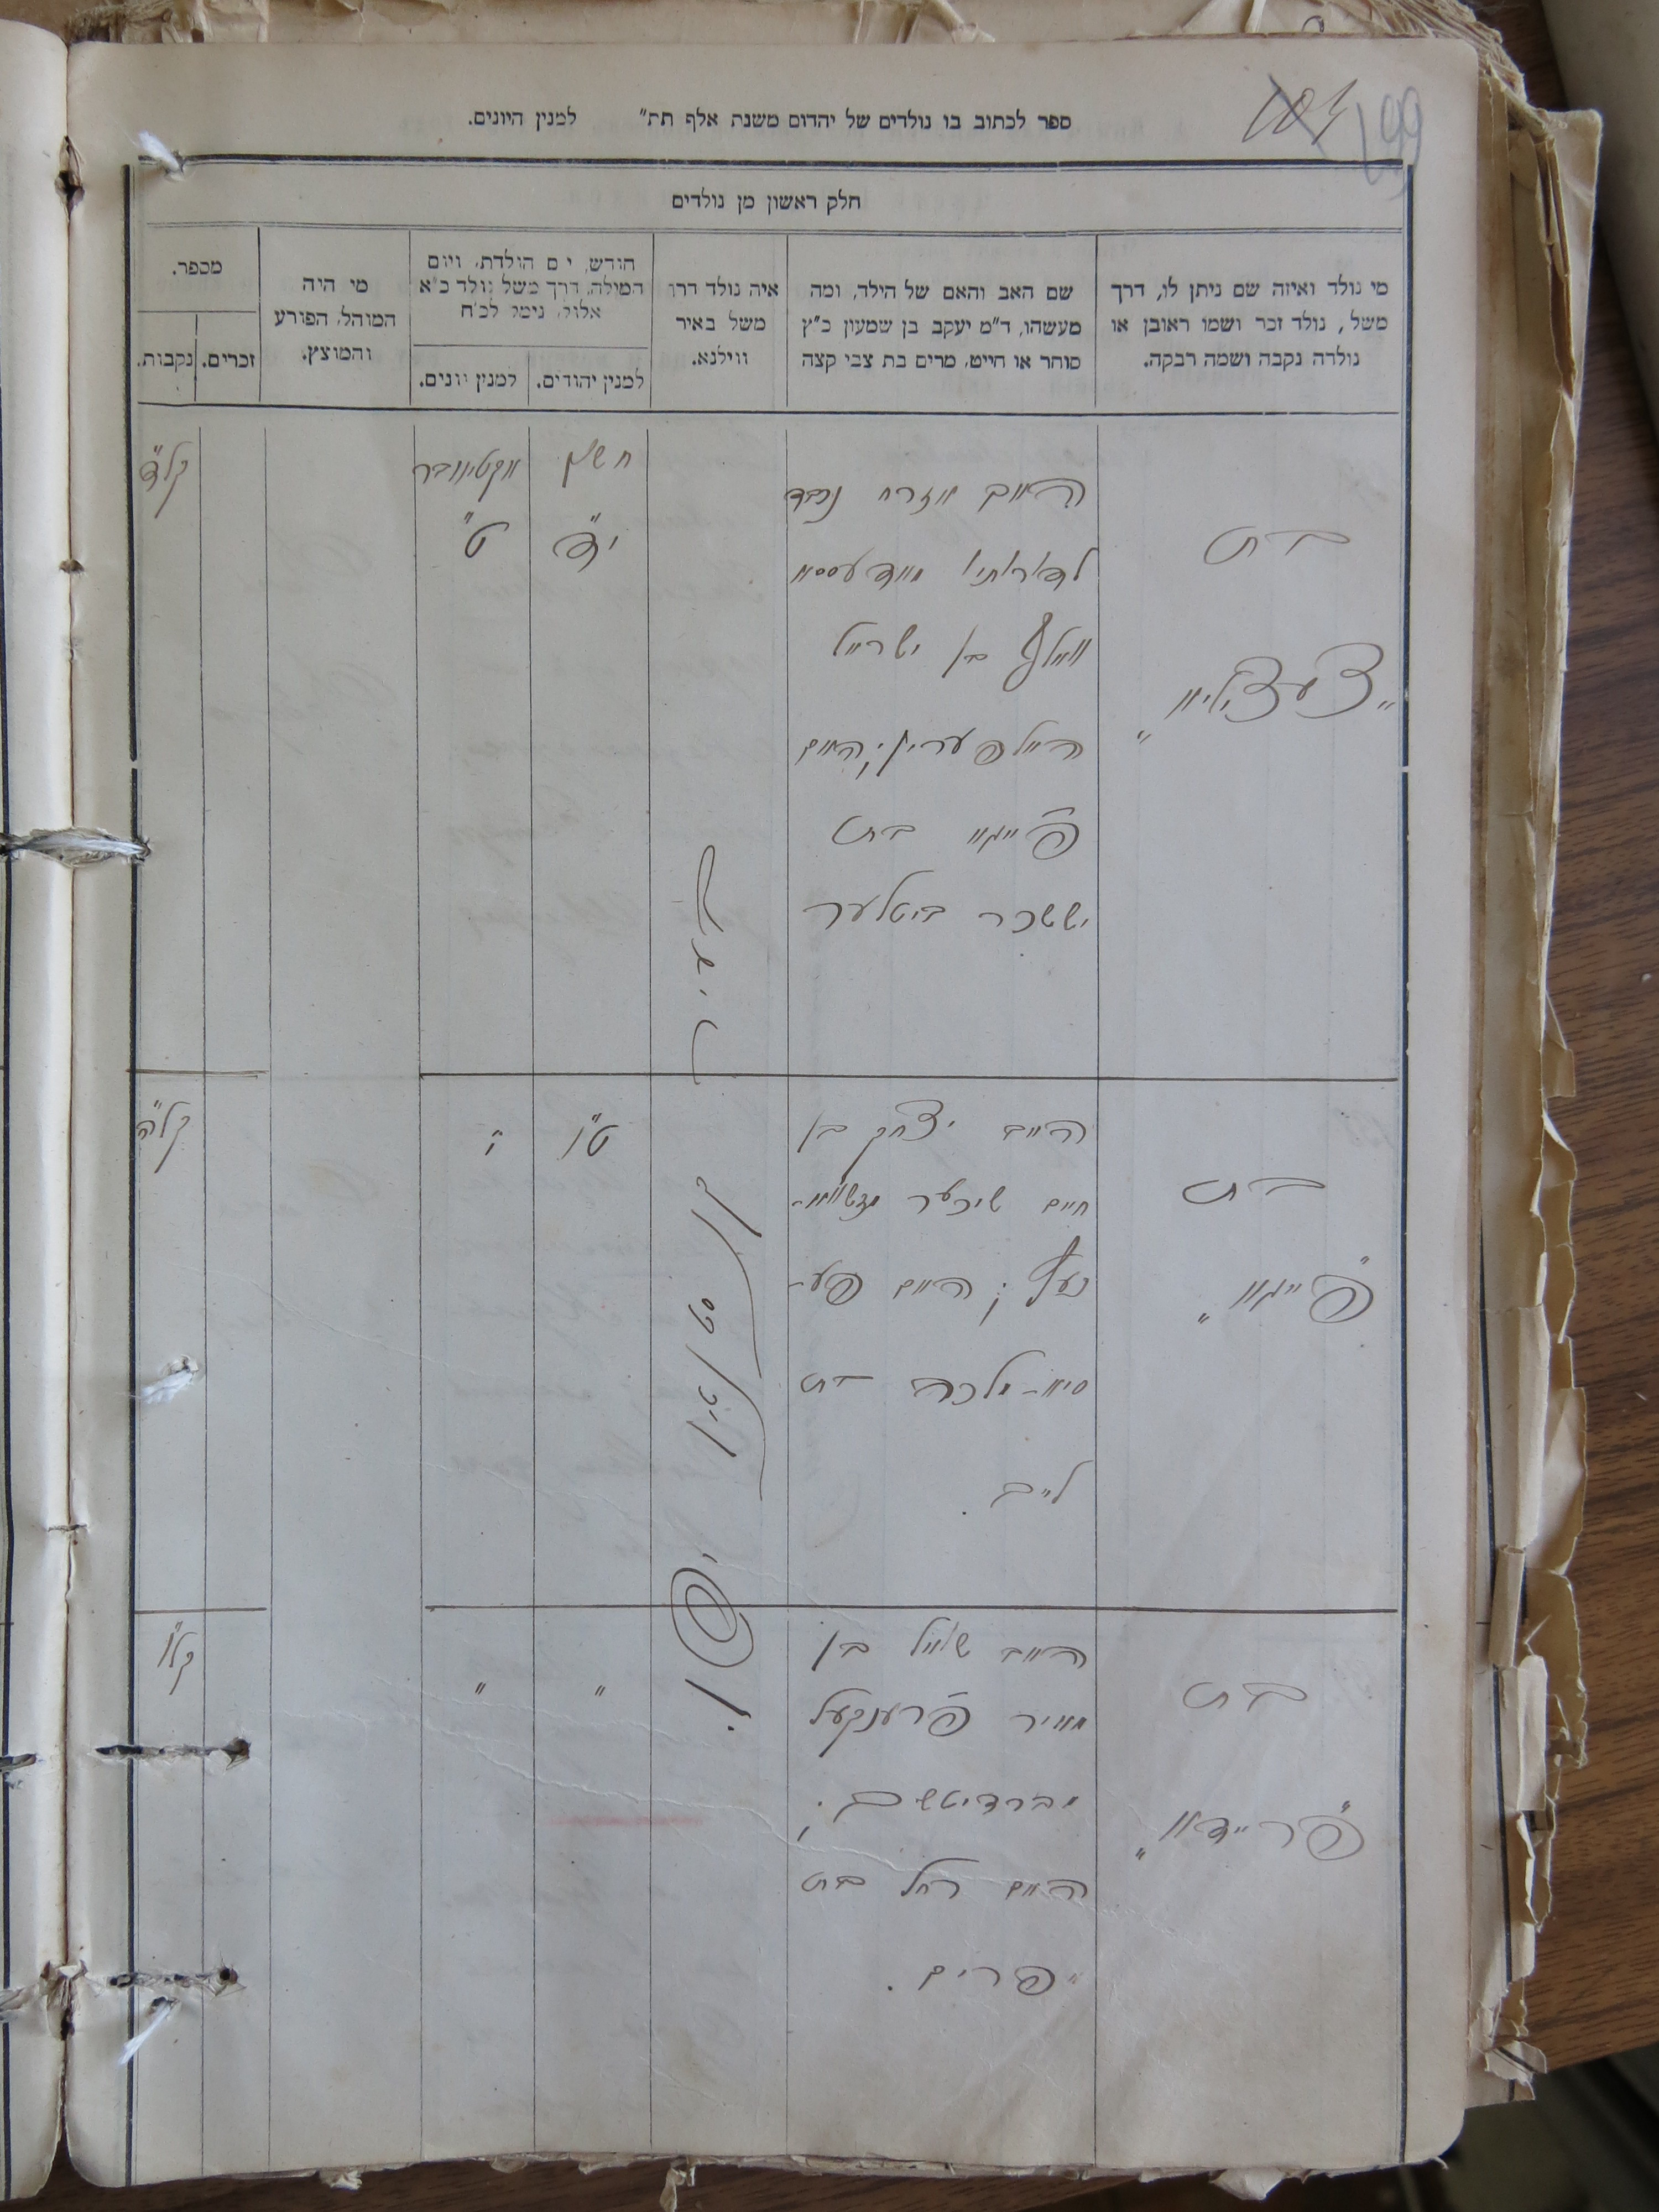 104 199
ספר לכתוב בו נולדים של יהדום משנת אלף תת״ למנין היונים.
חלק ראשון מן נולדים
מי נולד ואיזה שם ניתן לו, דרך
משל, נולד זכר ושמו ראובן או
נולדה נקבה ושמה רבקה.
שם האב והאם של הילד, ומה
מעשהו, ד״מ יעקב בן שמעון כ״ץ
סוחר או חייט, מרים בת צבי קצה
איה נולד דרך
משל באיר
ווילנא.
חודש, י ם הולדת, ויום
המילה, דרך משל נולד כ״א
אלול, נימל לכ״ח
למנין יהודים.
למנין יונים.
מי היה
המוהל, הפורע
והמוצץ.
מספר.
זכרים.
נקבות.
בת
״צעציליא״
האב אזרח נכבד
וואלף בן ישראל
האלפערין; האם
פייגא בת
יששכר ביטלער
העיר
חשון
י״ד
אקטאבר
ט״
קל״ד
בת
״פייגא״
האב יצחק בן
חיים שיכטער
האם פע-
סיא-מלכה בת
לייב.
קאנסטאנטין
ט״ו
י״
קל״ה
בת
״פריידא״
האב שאול בן
מאיר פרענקעל
מברדיטשב;
האם רחל בת
אפרים.
״
״
קל״ו